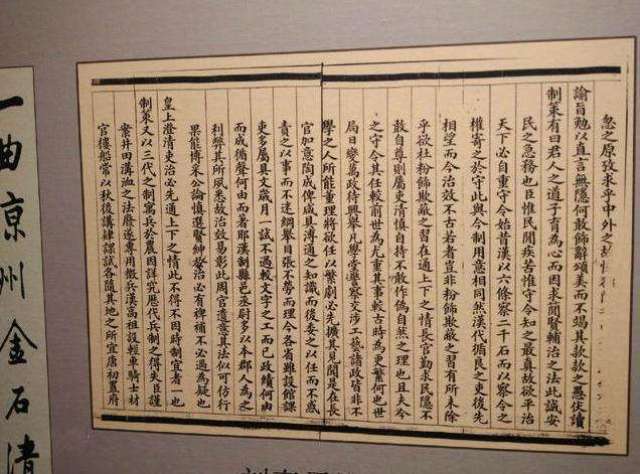 愆之原發求乎中外之故
諭旨勉以直言無隱何敢飾辭頌美而不竭其款款之愚伏讀
制策有曰君人之道子育為心而因求聞賢輔治之法此誠安
民之急務也臣惟民間疾苦惟守令知之最真故欲平治
天下必自重守令始昔漢以六條察二千石而以察令之
權寄之於守此與今制用意相同然漢代循良之吏後先
相望而今治效不古若者豈非粉飾欺蔽之習有所未除
乎欲杜粉飾欺蔽之習在通上下之情長官勤求民隱不
敢自尊則屬吏清慎自持不敢作偽自然之理也且夫今
之守令其任較前世為尤重其事較古時為更繁何也世
局日變萬政待興舉凡學堂警察交涉工藝諸政皆非不
學之人所能董理將欲任以繁劇必先擴其見聞是在長
官加意陶成俾咸具溥通之知識而後委之以任而不惑
責之以事而不迷綱舉目張不勞而理今各省雖設館課
吏多屬具文歲月一試不過較文字之工而已政績何由
而成循聲何由而著耶漢制縣邑丞尉多以本郡人為之
利弊其所夙悉故治效易彰此周官遺意其法似可仿行
果能博采公論慎選鄉紳於治必有裨補不必過為疑也
皇上澄清吏治必先通上下之情此不得不因時制宜者一也
制策又以三代之制寓兵於農因詳究歷代兵制之得失臣謹
案井田溝洫之法廢遂專用徵兵漢高祖設輕車騎士材
官樓船常以秋後講肄課試各隨其地之所宜康初置府
一曲京州金石清